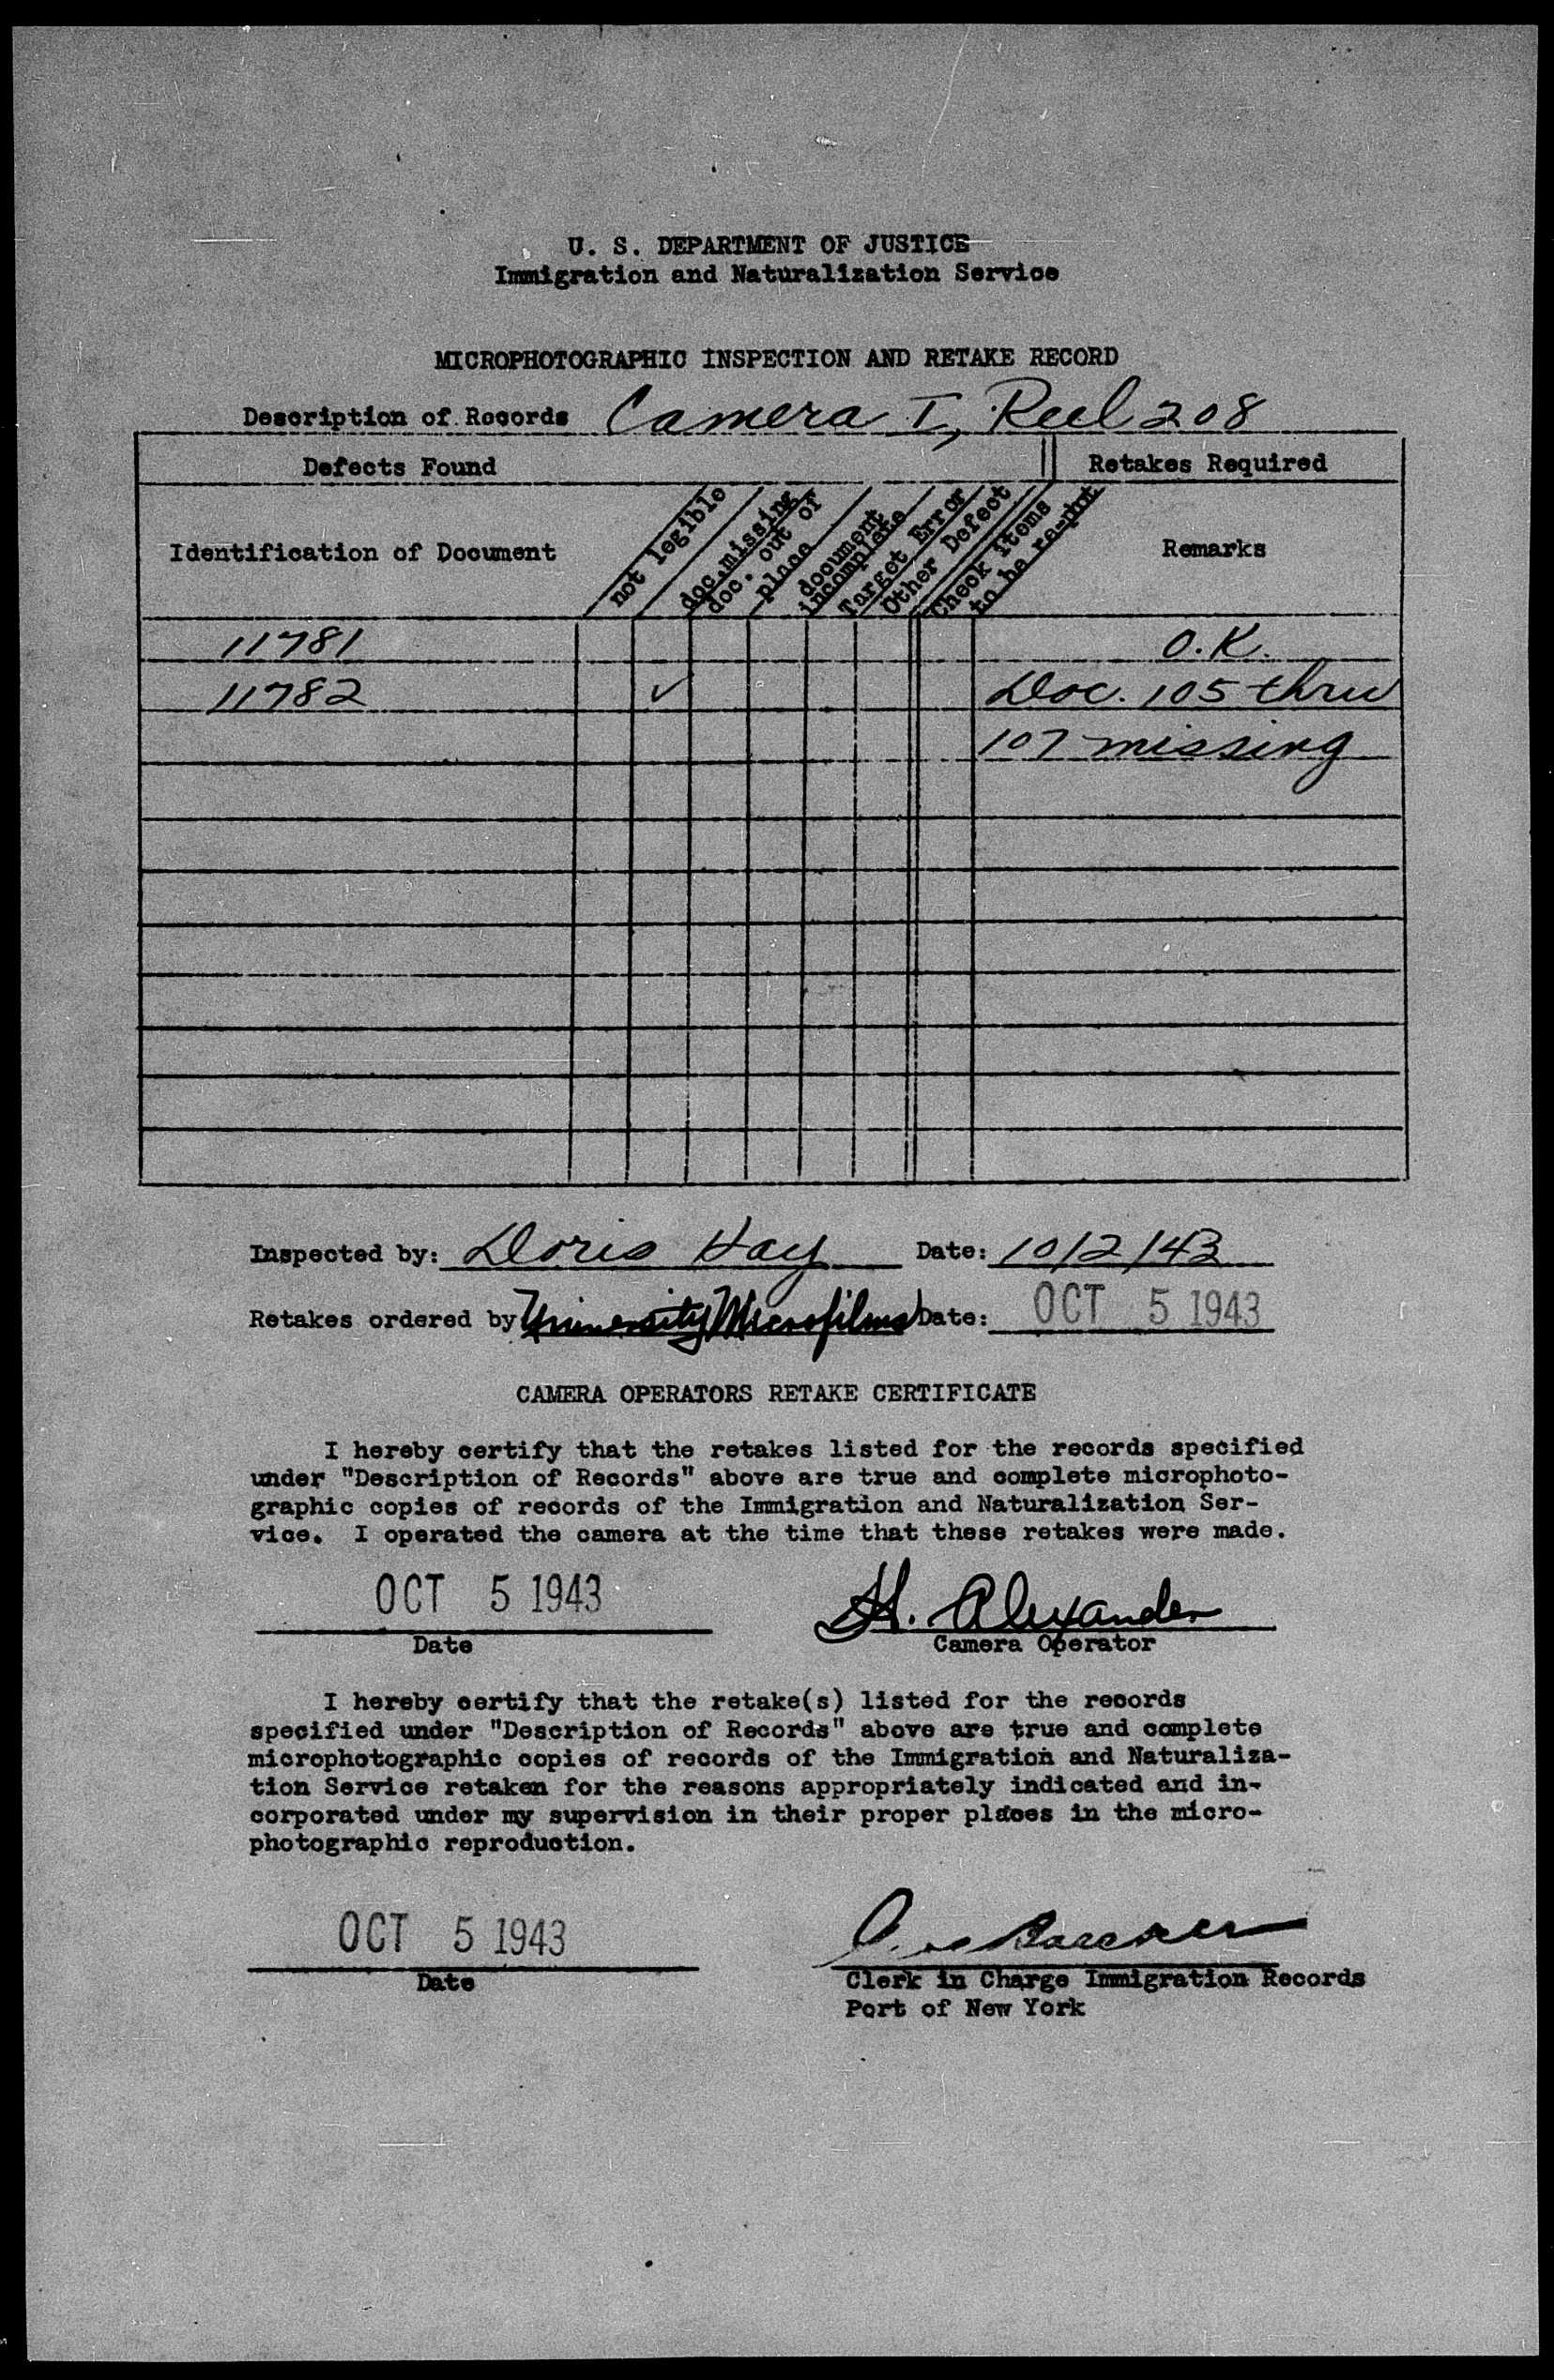 U. S. DEPARTMENT OF JUSTICE
Immigration and Naturalization Service
MICROPHOTOGRAPHIC INSPECTION AND RETAKE RECORD
Description of Records Camera I, Reel 208
Defects Found Retakes Required
Identification of Document
not legible
doc. missing
doc. out of
place
document
incomplete
Target Error
Other Defect
Check items
to be re-pht
Remarks
11781 O.K.
11782 ✓ Doc. 105 thru
107 missing
Inspected by: Doris Hay Date: 10/2/43
Retakes ordered by University Microfilms Date: OCT 5 1943
CAMERA OPERATORS RETAKE CERTIFICATE
I hereby certify that the retakes listed for the records specified
under "Description of Records" above are true and complete microphoto-
graphic copies of records of the Immigration and Naturalization Ser-
vice. I operated the camera at the time that these retakes were made.
OCT 5 1943 H. Alexander
Date Camera Operator
I hereby certify that the retake(s) listed for the records
specified under "Description of Records" above are true and complete
microphotographic copies of records of the Immigration and Naturaliza-
tion Service retaken for the reasons appropriately indicated and in-
corporated under my supervision in their proper places in the micro-
photographic reproduction.
OCT 5 1943
Date Clerk in Charge Immigration Records
Port of New York